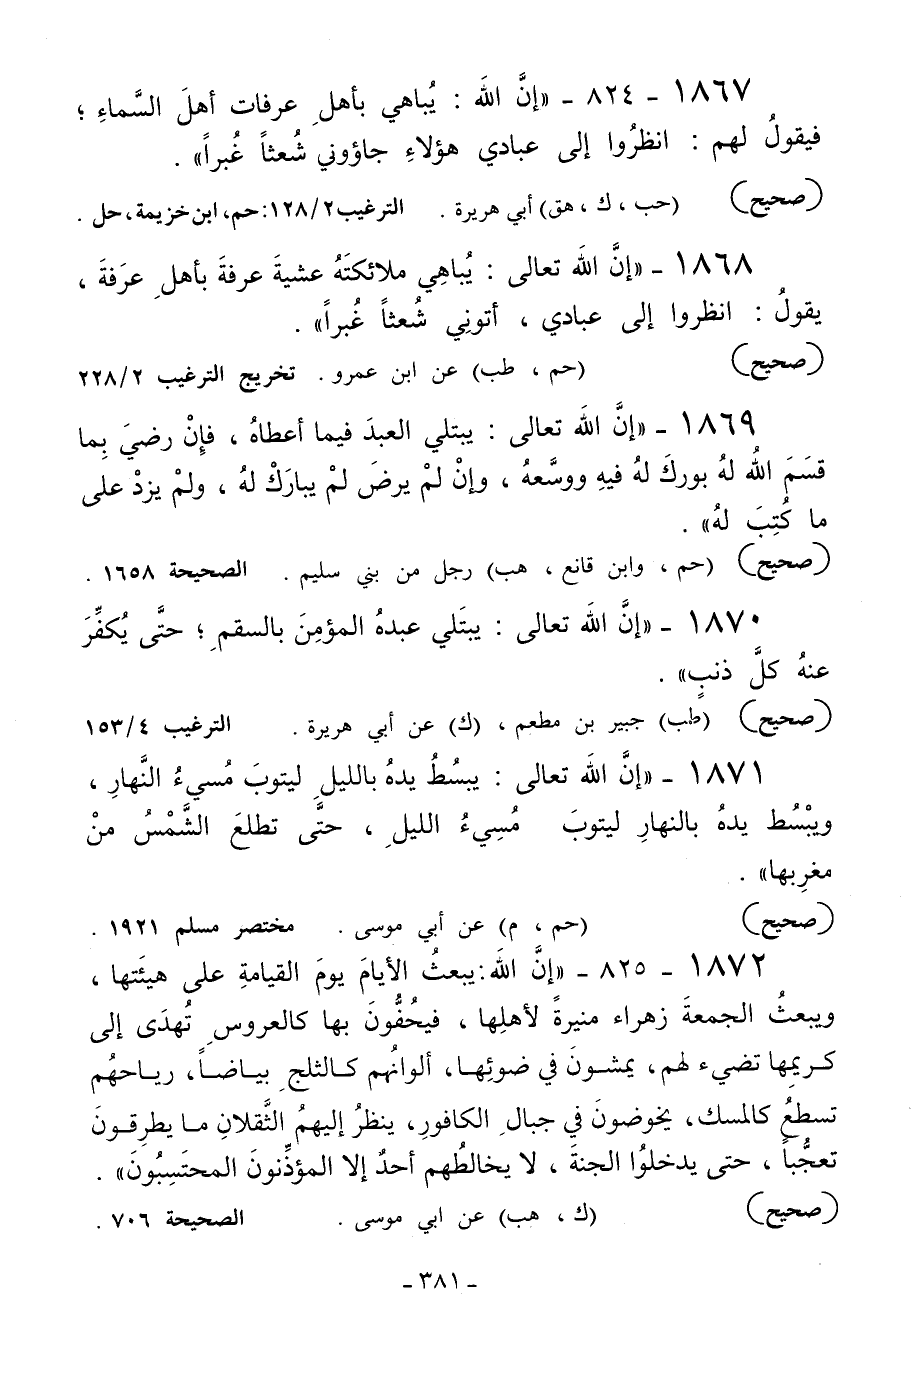 ١٨٦٧ - ٨٢٤ - «إنَّ اللَه : يُباهي بأهلِ عرفات أهلَ السَّماءِ ؛
فيقولُ لهم : انظرُوا إلى عبادي هؤلاءِ جاؤوني شُعثاً غُبراً» .
(صحيح) (حب ، ك ، هق) أبي هريرة . الترغيب ١٢٨/٢: حم، ابن خزيمة، حل .
١٨٦٨ - «إنَّ اللَه تعالى : يُباهِي ملائكتَهُ عشيةَ عرفةَ بأهلِ عرَفةَ ،
يقولُ : انظروا إلى عبادي ، أتونِي شُعثاً غُبراً» .
(صحيح) (حم ، طب) عن ابن عمرو . تخريج الترغيب ٢٢٨/٢
١٨٦٩ - «إنَّ اللَه تعالى : يبتلي العبدَ فيما أعطاهُ ، فإنْ رضيَ بِما
قسَمَ اللهُ لهُ بوركَ لهُ فيهِ ووسَّعهُ ، وإنْ لمْ يرضَ لمْ يبارَكْ لهُ ، ولمْ يزدْ على
ما كُتِبَ لهُ» .
(صحيح) (حم ، وابن قانع ، هب) رجل من بني سليم . الصحيحة ١٦٥٨ .
١٨٧٠ - «إنَّ اللَه تعالى : يبتَلي عبدهُ المؤمِنَ بالسقمِ ؛ حتَّى يُكفِّرَ
عنهُ كلَّ ذنبٍ» .
(صحيح) (طب) جبير بن مطعم ، (ك) عن أبي هريرة . الترغيب ١٥٣/٤
١٨٧١ - «إنَّ اللَه تعالى : يبسُطُ يدهُ بالليلِ ليتوبَ مُسيءُ النَّهارِ ،
ويبْسُط يدهُ بالنهارِ ليتوبَ مُسِيءُ الليلِ ، حتَّى تطلعَ الشَّمْسُ منْ
مغرِبها» .
(صحيح) (حم ، م) عن أبي موسى . مختصر مسلم ١٩٢١ .
١٨٧٢ - ٨٢٥ - «إنَّ اللَه: يبعثُ الأيامَ يومَ القيامةِ على هيئَتها ،
ويبعثُ الجمعةَ زهراء منيرةً لأهلِها ، فيحُفُّونَ بها كالعروسِ تُهدَى إلى
كريمِها تضيء لهم، يمشونَ في ضوئِها، ألوانُهم كالثلجِ بياضاً، رياحهُم
تسطعُ كالمسك، يخوضونَ في جبالِ الكافورِ، ينظرُ إليهمُ الثَّقلانِ ما يطرِقونَ
تعجُّباً ، حتى يدخلوُا الجنةَ ، لا يخالطُهم أحدٌ إلا المؤذِّنونَ المحتَسِبُونَ» .
(صحيح) (ك ، هب) عن ابي موسى . الصحيحة ٧٠٦ .
- ٣٨١ -